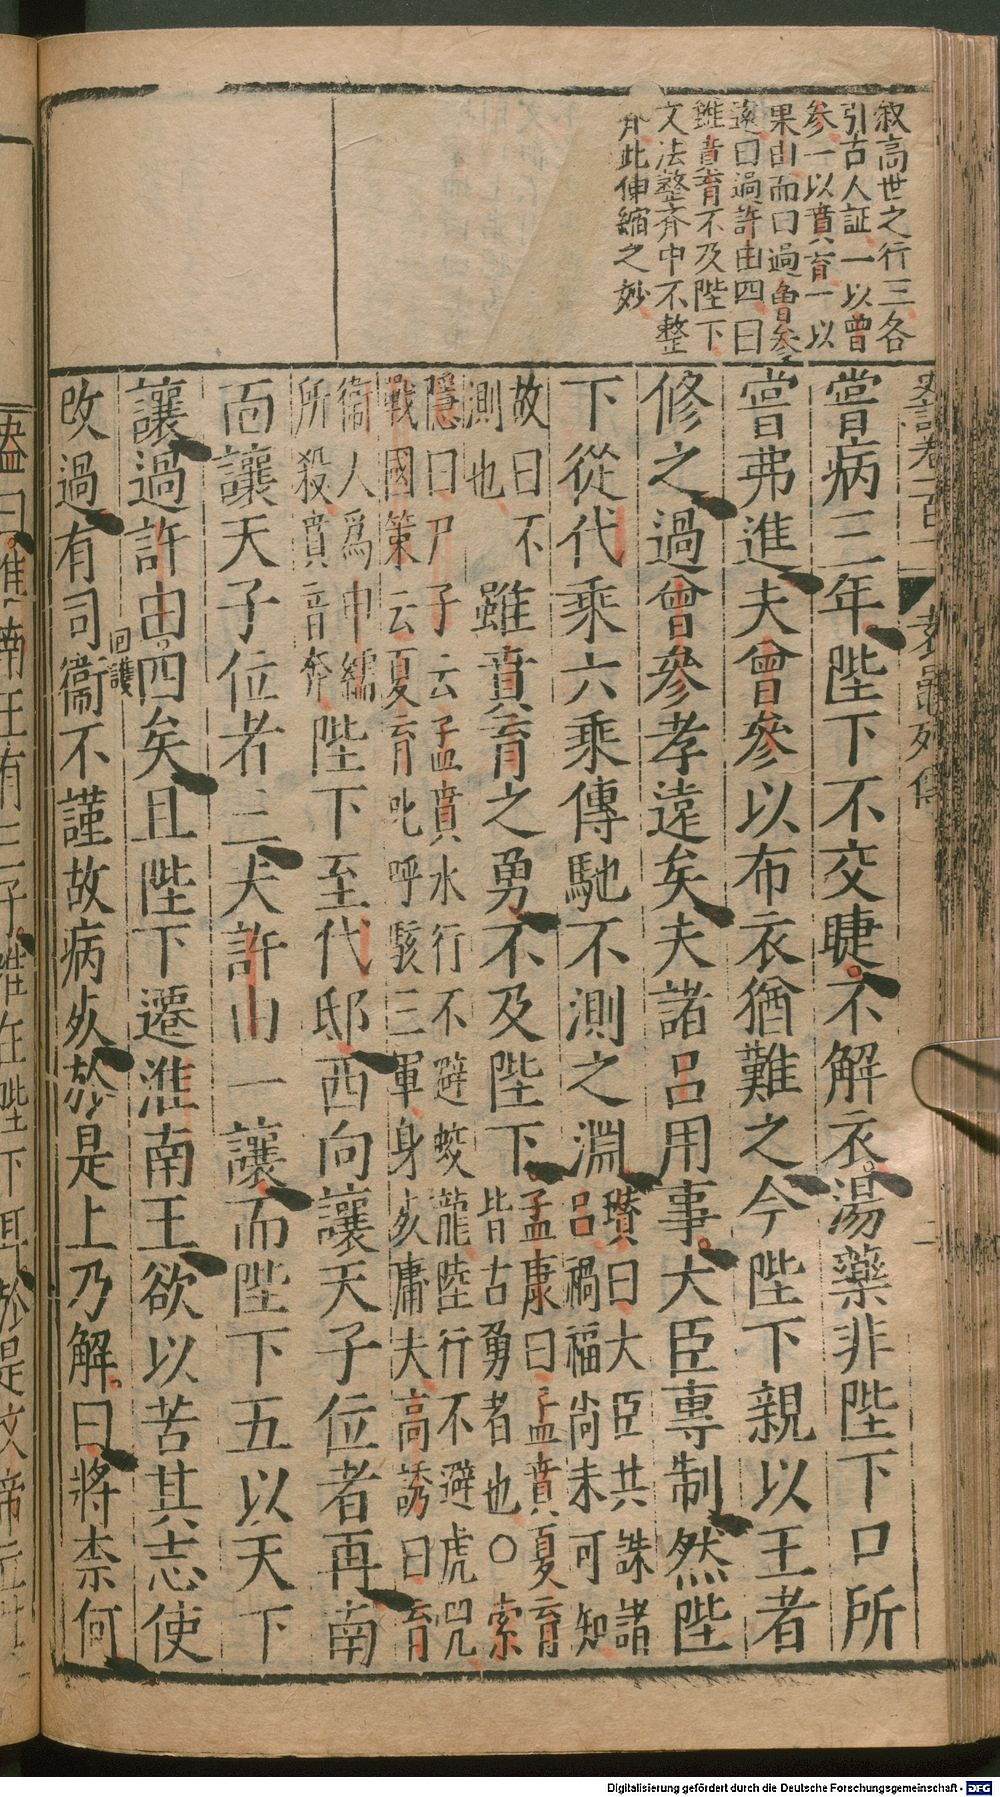 叙高世之行三各
引古人証一以曾
参一以賁育一以
果由而曰過曾參
遠曰過許由四曰
雖賁育不及陛下
文法整齊中不整
齊此伸縮之妙
嘗病三年陛下不交睫不解衣湯藥非陛下口所
嘗弗進夫曾參以布衣猶難之今陛下親以王者
修之過曾參孝遠矣夫諸呂用事大臣專制然陛
下從代乘六乘傳馳不測之淵
瓉曰大臣共誅諸
呂禍福尚未可知
故曰不
測也
雖賁育之勇不及陛下
孟康曰孟賁夏育
皆古勇者也○索
隱曰尸子云孟賁水行不避蛟龍陸行不避虎兕
戰國策云夏育叱呼駭三軍身死庸夫高誘曰育
衞人爲申繻
所殺賁音奔
陛下至代邸西向讓天子位者再南
面讓天子位者三夫許由一讓而陛下五以天下
讓過許由四矣且陛下遷淮南王欲以苦其志使
回護
改過有司衞不謹故病死於是上乃解曰將柰何
二
Digitalisierung gefördert durch die Deutsche Forschungsgemeinschaft - DFG